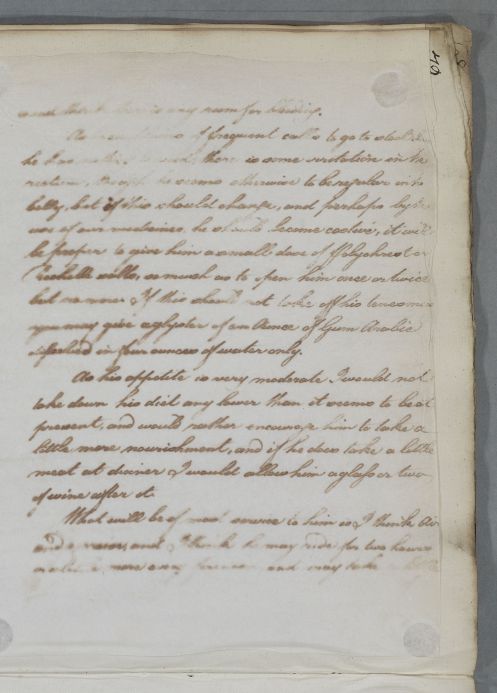 64
and think there is any room for bleeding.
As he complains of frequent calls to go to stool,
he has, there is some irritation in the
rectum, though he seems otherwise to be regular in his
belly, but if this should change, and perhaps by the
use of our medicines, he should become costive, it will
be proper to give him a small dose of Polychrest or
Rochelle salts, as much as to open him once or twice
but no more. If this should not take off his tenesmus
you may give a glyster of an ounce of Gum Arabic
dissolved in four ounces of water only.
As his appetite is very moderate I would not
take down his diet any lower than it seems to be at
present, and would rather encourage him to take a
little more nourishment, and if he does take a little
meat at dinner I would allow him a glass or two
of wine after it.
What will be of most service to him is I think Air
and, and I think he may ride for two hours
more every forenoon and may take